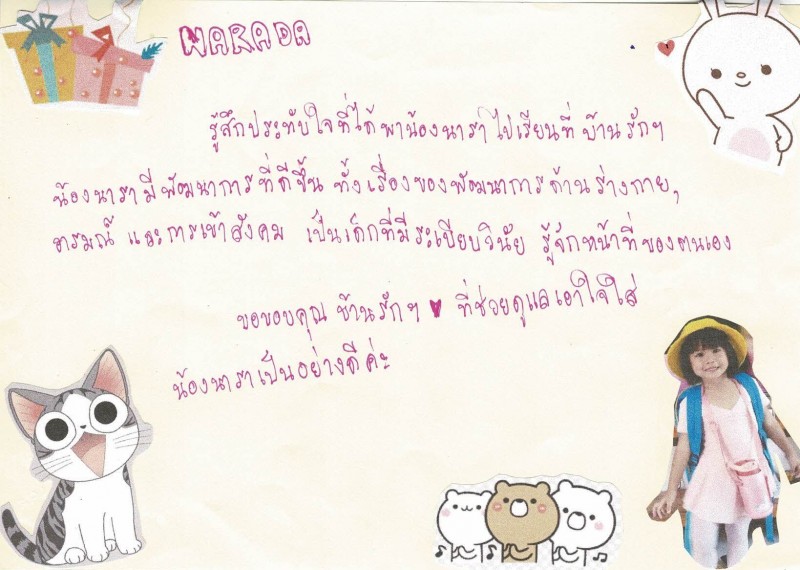 NARADA
รู้สึกประทับใจที่ได้พาน้องนาราไปเรียนที่บ้านรักฯ
น้องนารามีพัฒนาการที่ดีขึ้น ทั้งเรื่องของพัฒนาการด้านร่างกาย,
อารมณ์ และการเข้าสังคม เป็นเด็กที่มีระเบียบวินัย รู้จักหน้าที่ของตนเอง
ขอขอบคุณ บ้านรักฯ ♥ ที่ช่วยดูแลเอาใจใส่
น้องนาราเป็นอย่างดีค่ะ